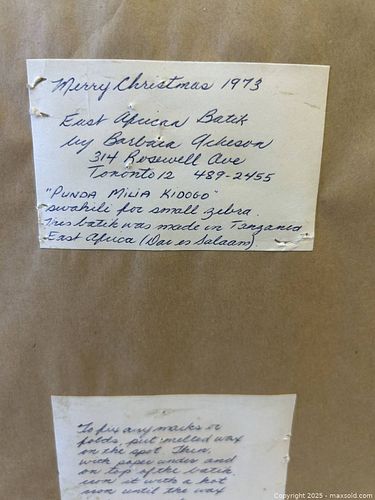 Merry Christmas 1973
East African Batik
by Barbara Acheson
314 Rosewell Ave
Toronto 12 489-2455
"PUNDA MILIA KIDOGO"
swahili for small zebra.
This batik was made in Tanzania
East Africa (Dar es Salaam).
To fix any marks or
folds, put melted wax
on the spot. Then,
with paper under and
on top of the batik
iron it with a hot
iron until the wax
© 2025 - maxsold.com